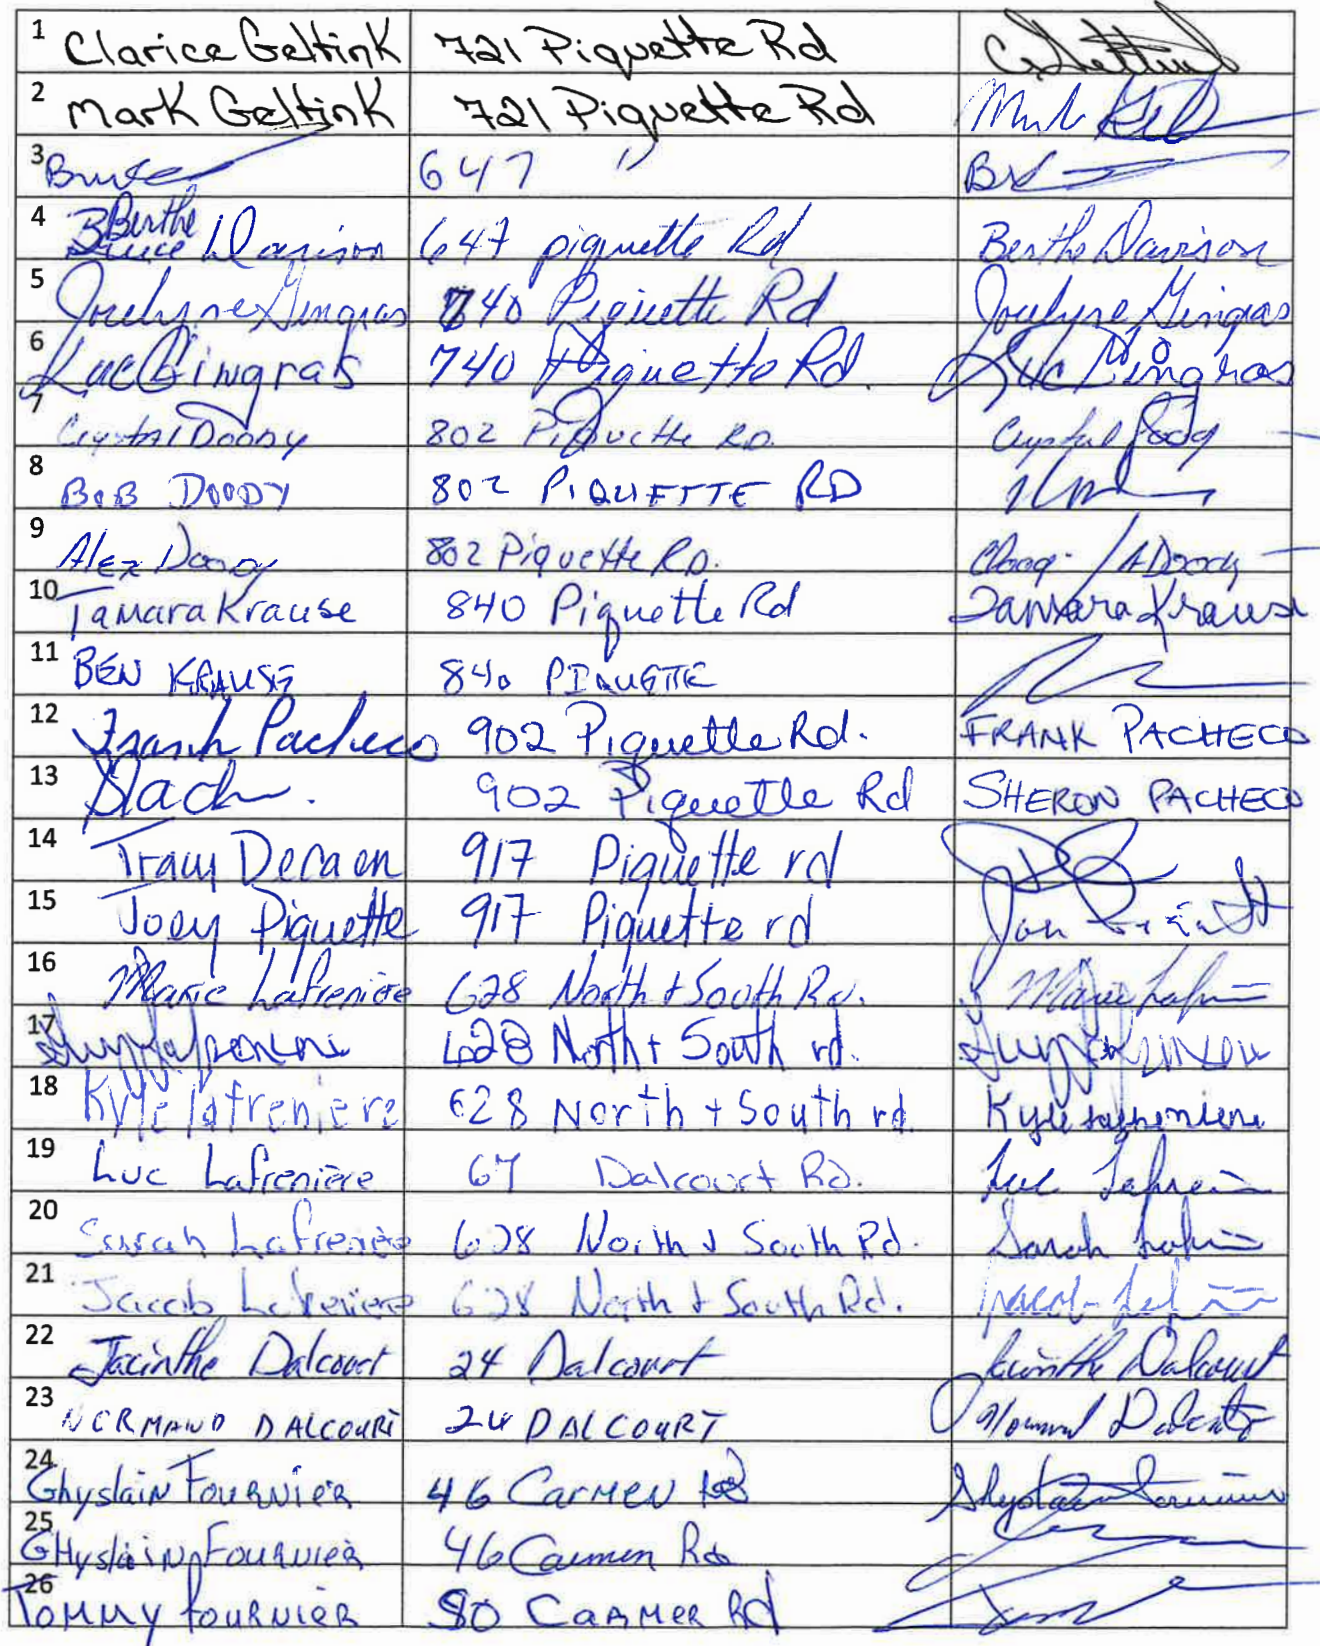 1 Clarice Geltink 721 Piquette Rd
2 Mark Geltink 721 Piquette Rd
3 Bruce 647 "
4 Berthe Davison 647 piquette Rd Berthe Davison
5 Jocelyne Gingras 740 Piquette Rd Jocelyne Gingras
6 Luc Gingras 740 Piquette Rd. Luc Gingras
7 Crystal Doody 802 Piquette RD. Crystal Doody
8 BOB DOODY 802 PIQUETTE RD
9 Alex Doody 802 Piquette RD. / A Doody
10 Tamara Krause 840 Piquette Rd Tamara Krause
11 BEN KRAUSE 840 PIQUETTE
12 Frank Pacheco 902 Piquette Rd. FRANK PACHECO
13 902 Piquette Rd SHERON PACHECO
14 Tracy Decaen 917 Piquette rd
15 Joey Piquette 917 Piquette rd
16 Marie Lafreniere 628 North + South Rd. Marie
17 628 North + South rd.
18 Kyle lafreniere 628 North + South rd Kyle lafreniere
19 Luc Lafreniere 67 Dalcourt Rd. Luc
20 Sarah Lafreniere 628 North & South Rd. Sarah
21 Jacob Lafreniere 628 North & South Rd. Jacob
22 Jacinthe Dalcourt 24 Dalcourt Jacinthe Dalcourt
23 NORMAND DALCOURT 24 DALCOURT
24 Ghyslain FOURNIER 46 Carmen Rd Ghyslain Fournier
25 GHyslaiN FOURNIER 46 Carmen Rd
26 TOMMY FOURNIER 80 CARMER Rd